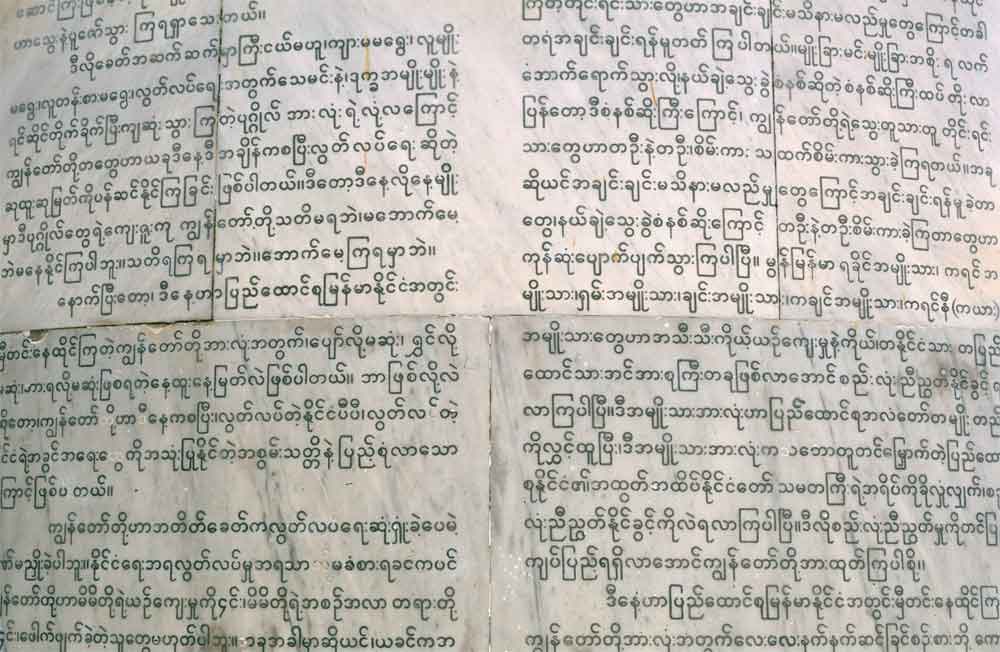 ဟာသွေးနဲ့ သွား ကြရရှာသေးတယ်။
ဒီလိုခေတ်အဆက်ဆက်မှာကြီးငယ်မဟူ၊ကျားမမရွေး၊ လူမျိုး
မရွေး၊လူတန်းစားမရွေး၊လွတ်လပ်ရေးအတွက်သေမင်းနဲ့၊ဒုက္ခအမျိုးမျိုးနဲ့
ရင်ဆိုင်တိုက်ခိုက်ပြီးကျဆုံးသွားကြတဲ့ပုဂ္ဂိုလ် အားလုံးရဲ့လုံ့လကြောင့်
ကျွန်တော်တို့တတွေဟာယခုဒီနေ့ဒီအချိန်ကစပြီးလွတ်လပ်ရေး ဆိုတဲ့
ဆုထူးဆုမြတ်ကိုပန်ဆင်နိုင်ကြခြင်းဖြစ်ပါတယ်။ဒီတော့ဒီနေ့လိုနေ့မျိုး
မှာဒီပုဂ္ဂိုလ်တွေရဲ့ကျေးဇူးကို ကျွန်တော်တို့သတိမရဘဲ၊မအောက်မေ့
ဘဲမနေနိုင်ကြပါဘူး။သတိရကြရမှာဘဲ။အောက်မေ့ကြရမှာဘဲ။
နောက်ပြီးတော့၊ ဒီနေ့ဟာပြည်ထောင်စုမြန်မာနိုင်ငံအတွင်း
မှီတင်းနေထိုင်ကြတဲ့ကျွန်တော်တို့အားလုံးအတွက်၊ပျော်လို့မဆုံး၊ ရွှင်လို့
မဆုံး၊အားရလို့မဆုံးဖြစ်ရတဲ့နေ့ထူးနေ့မြတ်လဲဖြစ်ပါတယ်။ ဘာဖြစ်လို့လဲ
ဆိုတော့၊ကျွန်တော်တို့ဟာ ဒီနေ့ကစပြီး၊လွတ်လပ်တဲ့နိုင်ငံပီပီ၊လွတ်လပ်တဲ့
နိုင်ငံရဲ့အခွင့်အရေးတွေကိုအသုံးပြုနိုင်တဲ့အစွမ်းသတ္တိနဲ့ပြည့်စုံလာသော
ကြောင့်ဖြစ်ပါတယ်။
ကျွန်တော်တို့ဟာအတိတ်ခေတ်ကလွတ်လပ်ရေးဆုံးရှုံးခဲ့ပေမဲ့
ဏ်မညှိုးခဲ့ပါဘူး။နိုင်ငံရေးအရလွတ်လပ်မှုအရသာ မခံစားရခင်ကပင်
ကျွန်တော်တို့ဟာမိမိတို့ရဲ့ယဉ်ကျေးမှုကို၄င်း၊မိမိတို့ရဲ့အစဉ်အလာ တရားတို့
၄င်း၊ပေါက်ဖျက်ခဲ့တဲ့သူတွေမဟုတ်ပါဘူး။ ယခုအခါမှာဆိုယင်၊ယခင်ကအ
ကြတဲ့တိုင်းရင်းသားတွေဟာအချင်းချင်းမသိနားမလည်မှုတွေကြောင့်တခါ
တရံအချင်းချင်းရန်မူတတ်ကြပါတယ်။မျိုးခြားမင်းမျိုးခြားအစိုးရ လက်
အောက်ရောက်သွားလို့နယ်ချဲ့သွေးခွဲစံနစ်ဆိုတဲ့စံနစ်ဆိုးကြီးထပ်တိုးလာ
ပြန်တော့ဒီစံနစ်ဆိုးကြီးကြောင့်၊ ကျွန်တော်တို့ရဲ့သွေးတူသားတူ တိုင်းရင်း
သားတွေဟာတဦးနဲ့တဦး၊စိမ်းကားသထက်စိမ်းကားသွားခဲ့ကြရတယ်။အရ
ဆိုယင်အချင်းချင်းမသိနားမလည်မှုတွေကြောင့်အချင်းချင်းရန်မူခဲ့တာ
တွေ၊နယ်ချဲ့သွေးခွဲစံနစ်ဆိုးကြောင့် တဦးနဲ့တဦးစိမ်းကားခဲ့ကြတာတွေဟာ
ကုန်ဆုံးပျောက်ပျက်သွားကြပါပြီ။ မွန်မြန်မာ ရခိုင်အမျိုးသား၊ ကရင်အ
မျိုးသား၊ရှမ်းအမျိုးသား၊ချင်းအမျိုးသား၊ကချင်အမျိုးသား၊ကရင်နီ(ကယား)
အမျိုးသားတွေဟာအသီးသီးကိုယ့်ယဉ်ကျေးမှုနဲ့ကိုယ်၊တနိုင်ငံသား တပြည်
ထောင်သားအင်အားစုကြီးတခုဖြစ်လာအောင်စည်းလုံးညီညွတ်နိုင်ခွင့်ရ
လာကြပါပြီ။ဒီအမျိုးသားအားလုံးဟာပြည်ထောင်စုအလံတော်တမျိုးတည်း
ကိုလွှင့်ထူပြီး၊ဒီအမျိုးသားအားလုံးကသဘောတူတင်မြှောက်တဲ့ပြည်ထောင်
စုနိုင်ငံ၏အထွတ်အထိပ်နိုင်ငံတော် သမတကြီးရဲ့အရိပ်ကိုခိုလှုံလျှက်၊
လုံးညီညွတ်နိုင်ခွင့်ကိုလဲရလာကြပါပြီ။ဒီလိုစည်းလုံးညီညွတ်မှုကိုတင်ပြ
ကျပ်ပြည့်ရရှိလာအောင်ကျွန်တော်တို့အားထုတ်ကြပါစို့။
ဒီနေ့ဟာပြည်ထောင်စုမြန်မာနိုင်ငံအတွင်းမှီတင်းနေထိုင်ကြ
ကျွန်တော်တို့အားလုံးအတွက်လေးလေးနက်နက်ဆင်ခြင်စဉ်းစားဘို့